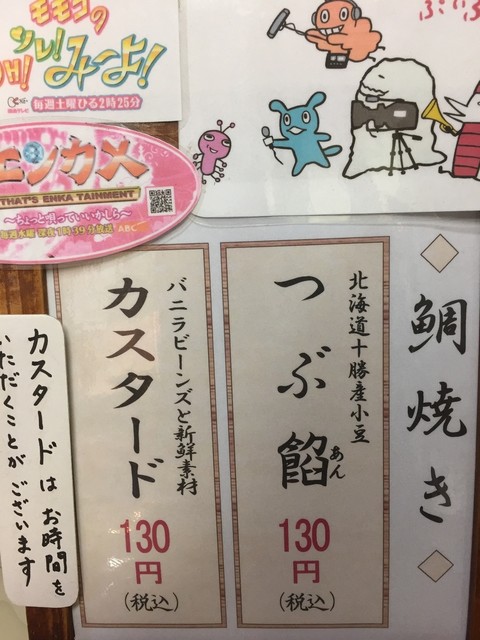 モモコの
OH!
ソレ!
み〜よ!
毎週土曜ひる2時25分
エンカメ
THAT'S ENKA TAINMENT
〜ちょっと唄っていいかしら〜
ABC
◇鯛焼き◇
北海道十勝産小豆
つぶ餡
あん
130
円
(税込)
バニラビーンズと新鮮素材
カスタード
130
円
(税込)
カスタードはお時間を
いただくことがございます